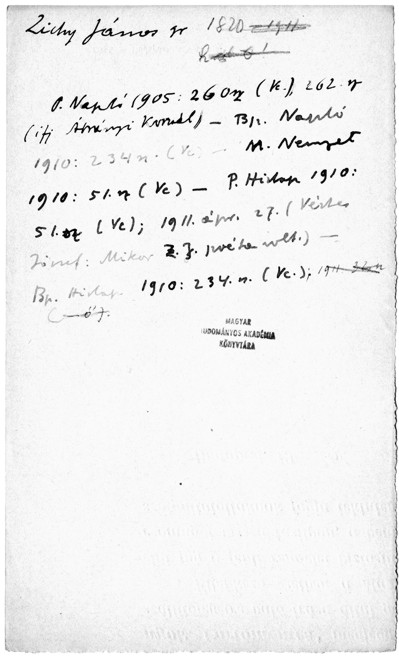 Zichy János gr 1820-1911
P. Napló 1905: 260 sz (Vc.), 262. sz
(ifj Ábrányi Kornél) – Bp. Napló
1910: 234 n. (Vc) – M. Nemzet
1910: 51. sz (Vc) – P. Hirlap 1910:
51. sz (Vc); 1911. ápr. 27. (Vértes
József: Mikor Z. J. volt.) –
Bp. Hirlap 1910: 234. n. (Vc.);
MAGYAR
TUDOMÁNYOS AKADÉMIA
KÖNYVTÁRA